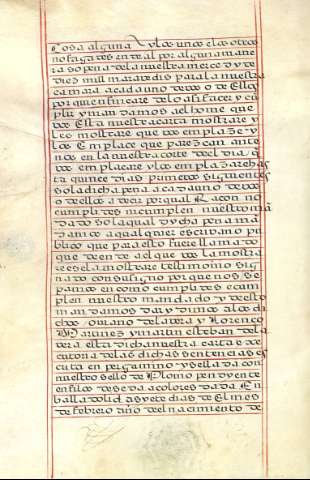 cosa alguna y los unos e los otros
no fagades ende al por alguna mane
ra so pena de la nuestra merced y de
diez mill maravedis para la nuestra
camara a cada uno de vos o de ellos
por quien fincare de lo asi facer y cu
plir y mandamos al home que
vos esta nuestra carta mostrare y
les mostrare que vos emplaze y
los emplace que parezcan ante
nos en la nuestra corte del dia q
vos emplacare y los emplazare has
ta quince dias primeros siguientes
so la dicha pena a cada uno de vos
o de ellos a decir por qual racon no
cumplides ni cumplen nuestro ma
dado so la qual dicha pena ma
damos a qualquier escribano pu
blico que para esto fuere llamado
que de ende a el que vos la mostra
re es ela mostrare testimonio sig
nado con su signo porque nos se
pamos en como cumplides e cum
plen nuestro mandado y de esto
mandamos dar y dimos a los di
chos de la vera y Lorenco
Martinez y martin esteban de la
vera esta dicha nuestra carta exe
cutoria de las dichas sentencias es
crita en pergamino y sellada con
nuestro sello de Plomo pendyente
en filos de seda a colores dada En
balladolid a syete dias de El mes
de febrero año del nacimiento de